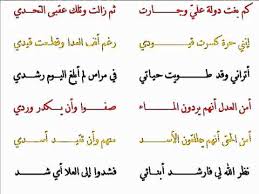 كم بغت دولة عليّ وجارت ثم زالت وتلك عقبى التحدي
إنني حرة كسرت قيودي رغم أنف العدا وقطعت قيدي
أتراني وقد طويت حياتي في مراس لم أبلغ اليوم رشدي
أمن العدل أنهم يردون الماء صفوا وأن يكدر وردي
أمن الحق أنهم يطلقون الأسد منهم وأن تقيد أسدي
نظر الله لي فأرشد أبنائي فشدوا إلى العلا أي شد